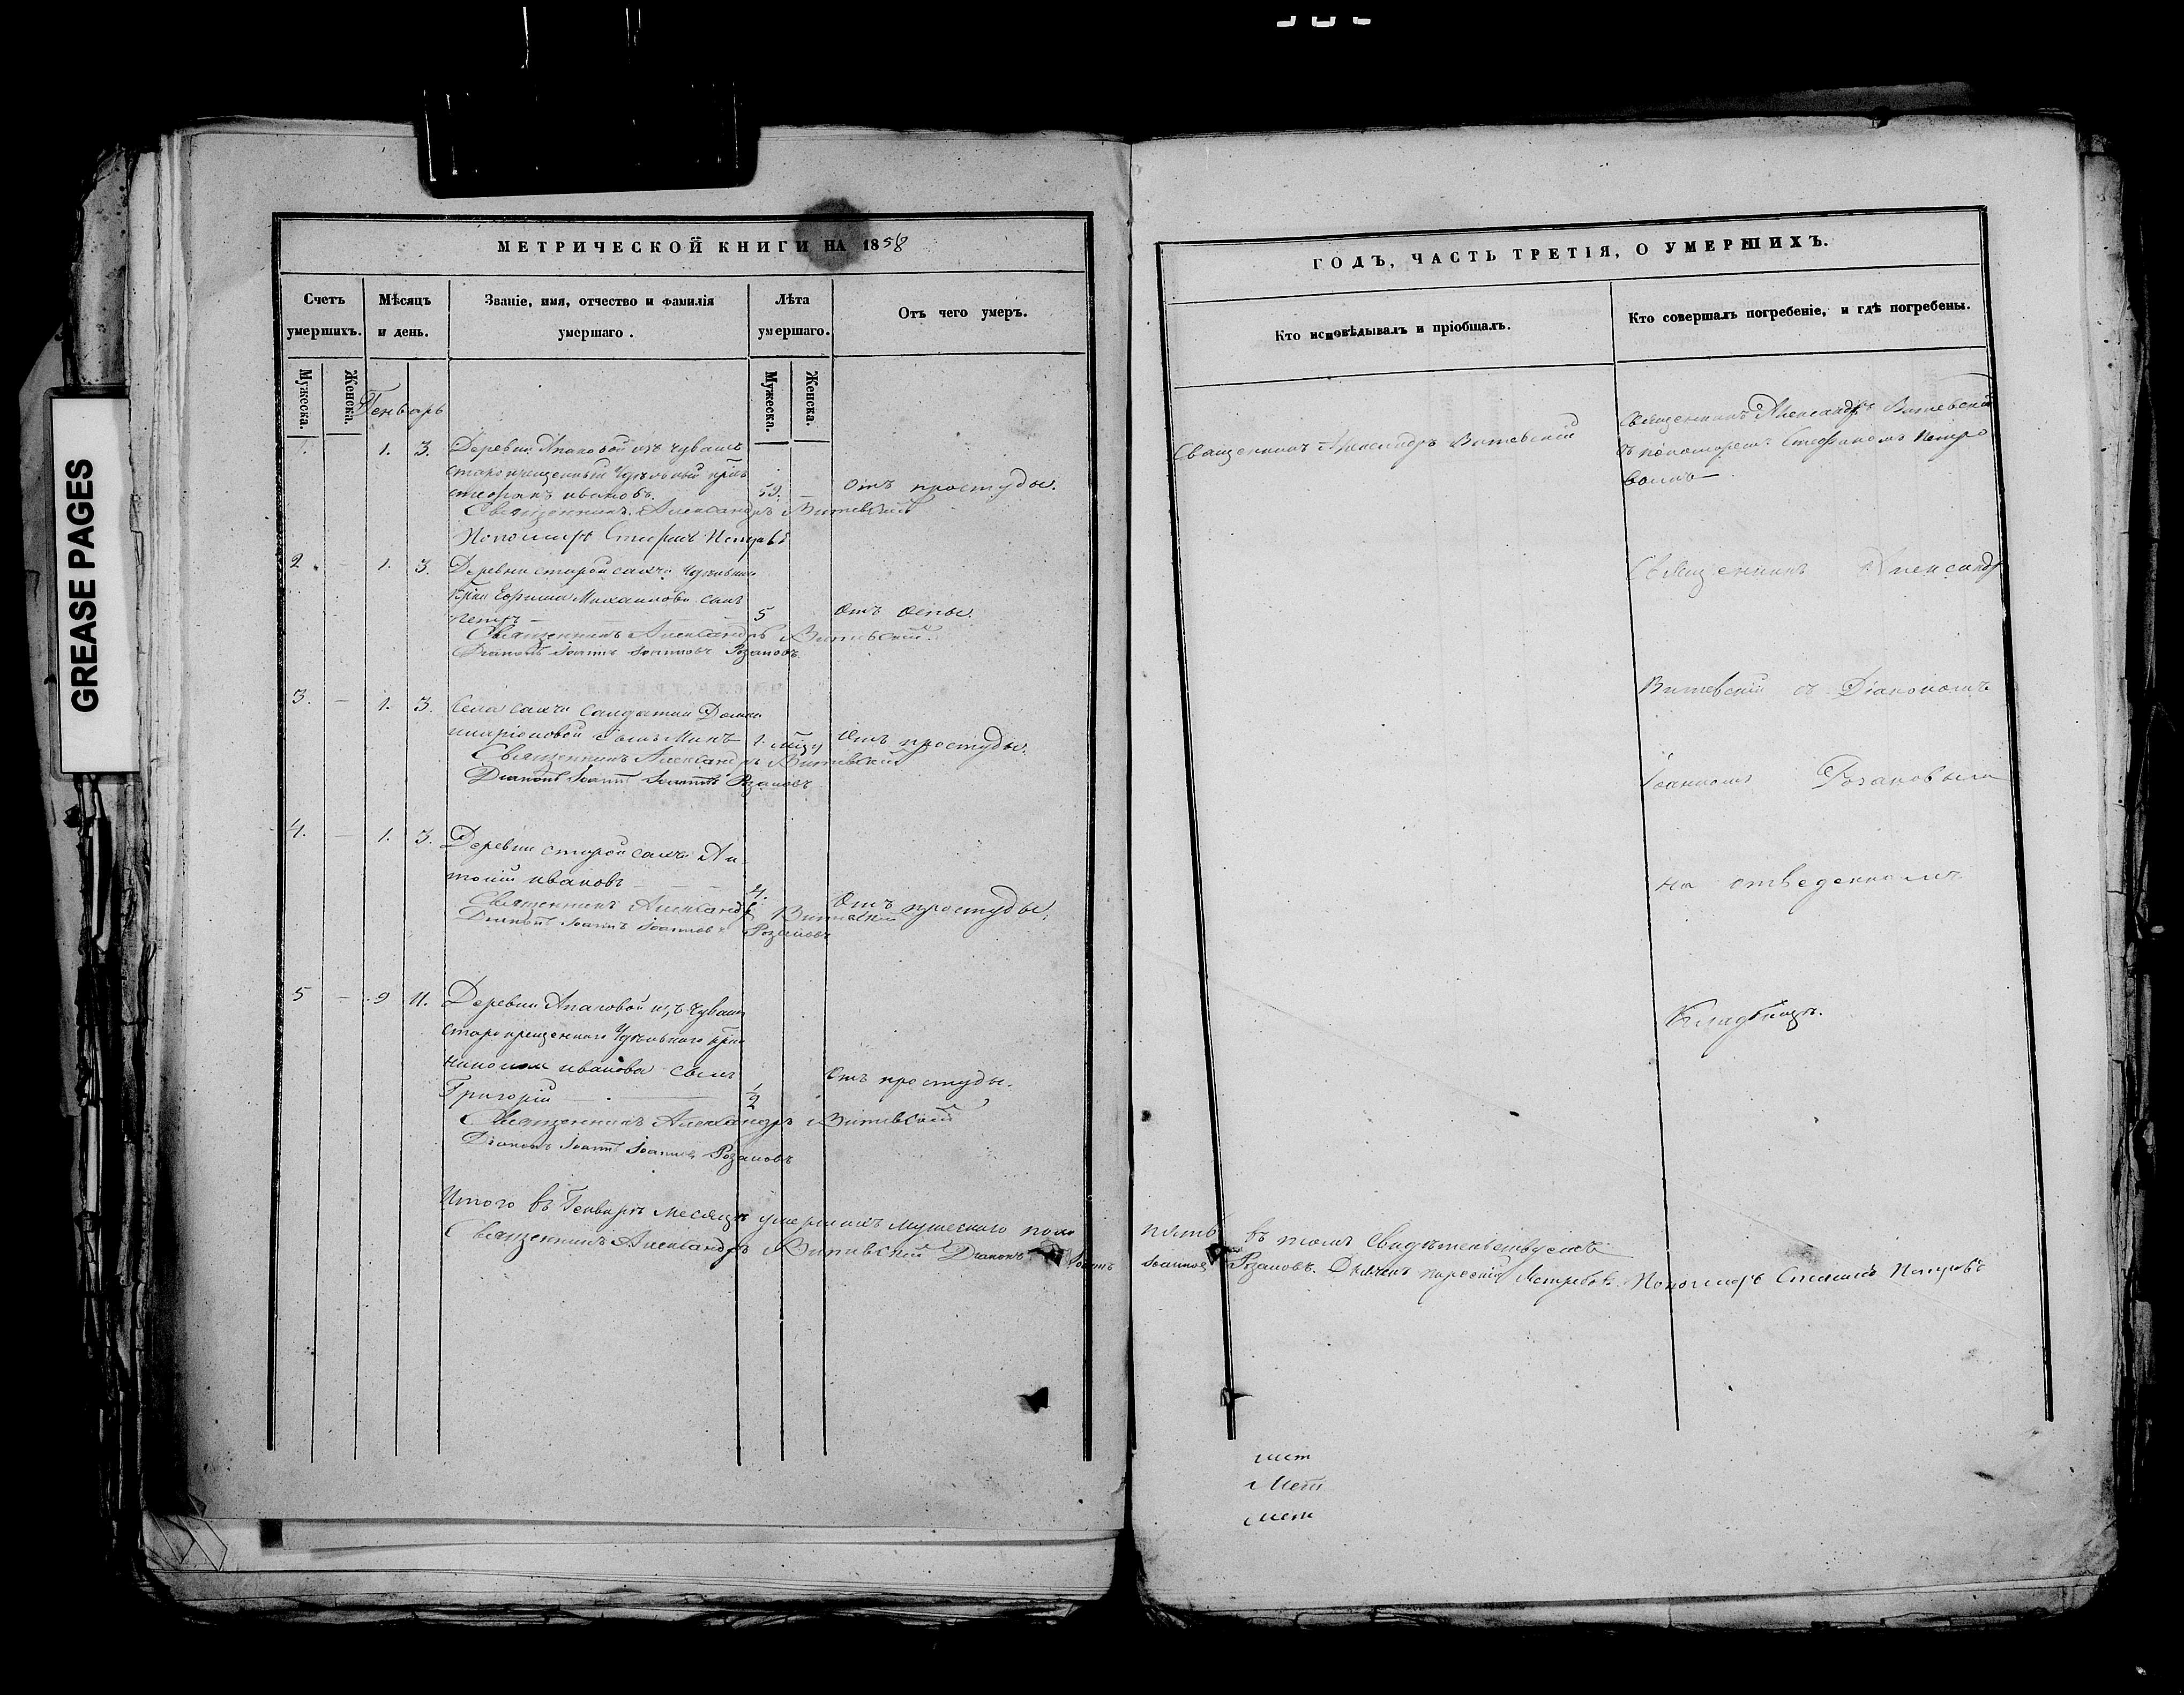 GREASE PAGES
МЕТРИЧЕСКОЙ КНИГИ НА 1858
Счетъ умершихъ.
Мѣсяцъ и день.
Званіе, имя, отчество и фамилія умершаго.
Лѣта умершаго.
Отъ чего умеръ.
Мужеска.
Женска.
Мужеска.
Женска.
Генварь
1. 3. Деревни Апаковой изъ чувашъ
старокрещенный Удѣльный крѣс
Стефанъ Ивановъ. 59. – Отъ простуды.
Священникъ Александръ Витевскій
Пономарь Стефанъ Петровъ
2. – 1. 3. Деревни старой сахчи Удѣльнаго
Ефима Михайлова сынъ
Петръ – 5 Отъ оспы.
Священникъ Александръ Витевскій.
Діаконъ Іоаннъ Іоанновъ Розановъ.
3. – 1. 3. Села сахчи солдатки
сынъ 1. Отъ простуды.
Священникъ Александръ Витевскій
Діаконъ Іоаннъ Іоанновъ Розановъ
4. – 1. 3. Деревни старой сахчи Ан
тоній Ивановъ 4. Отъ простуды.
Священникъ Александръ Витевскій
Діаконъ Іоаннъ Іоанновъ Розановъ
5 – 9 11. Деревни Апаковой изъ чувашъ
старокрещеннаго Удѣльнаго
Ивановъ сынъ Отъ простуды.
Григорій – 1/2
Священникъ Александръ Витевскій
Діаконъ Іоаннъ Іоанновъ Розановъ
Итого въ Генварѣ месяцѣ умершихъ мужескаго пола
Священникъ Александръ Витевскій Діаконъ Іоаннъ
ГОДЪ, ЧАСТЬ ТРЕТІЯ, О УМЕРШИХЪ.
Кто исповѣдывалъ и пріобщалъ.
Кто совершалъ погребеніе, и гдѣ погребены.
Священникъ Александръ Витевскій
Священникъ Александръ Витевскій
съ пономаремъ Стефаномъ Петро
вымъ –
Священникъ Александръ
Витевскій съ Діакономъ
Іоанномъ Розановымъ
на отведенномъ
Кладбищѣ.
пять въ томъ Свидѣтельствуемъ
Іоанновъ Розановъ. Пономарь Стефанъ Петровъ